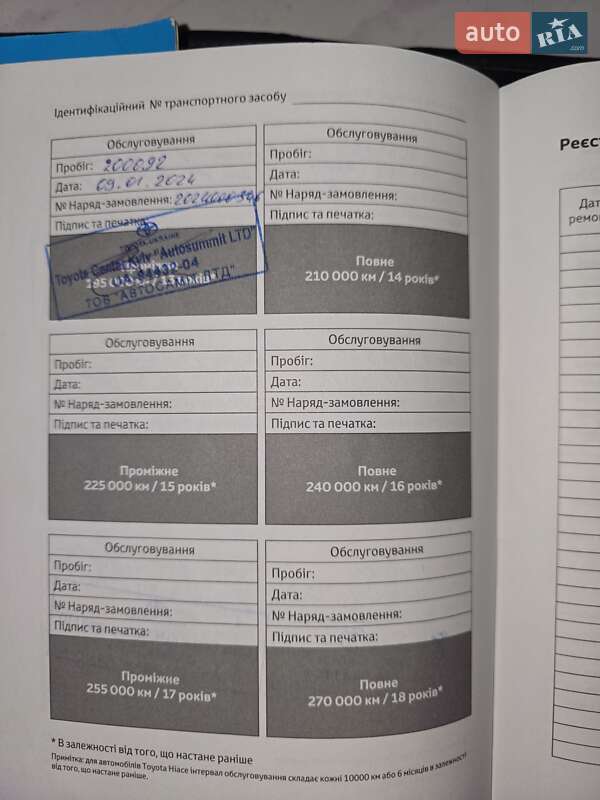 auto RIA.com
Ідентифікаційний № транспортного засобу
Обслуговування
Пробіг: 200092
Дата: 09.01.2024
№ Наряд-замовлення:
Підпис та печатка:
TOYOTA UKRAINE
Toyota Center Kyiv "Autosummit LTD"
ТОВ "АВТОСАМІТ ЛТД"
195 000 км / 13 років*
Обслуговування
Пробіг:
Дата:
№ Наряд-замовлення:
Підпис та печатка:
Повне
210 000 км / 14 років*
Обслуговування
Пробіг:
Дата:
№ Наряд-замовлення:
Підпис та печатка:
Проміжне
225 000 км / 15 років*
Обслуговування
Пробіг:
Дата:
№ Наряд-замовлення:
Підпис та печатка:
Повне
240 000 км / 16 років*
Обслуговування
Пробіг:
Дата:
№ Наряд-замовлення:
Підпис та печатка:
Проміжне
255 000 км / 17 років*
Обслуговування
Пробіг:
Дата:
№ Наряд-замовлення:
Підпис та печатка:
Повне
270 000 км / 18 років*
* В залежності від того, що настане раніше
Примітка: для автомобілів Toyota Hiace інтервал обслуговування складає кожні 10000 км або 6 місяців в залежності
від того, що настане раніше.
Реєст
Дат
ремон